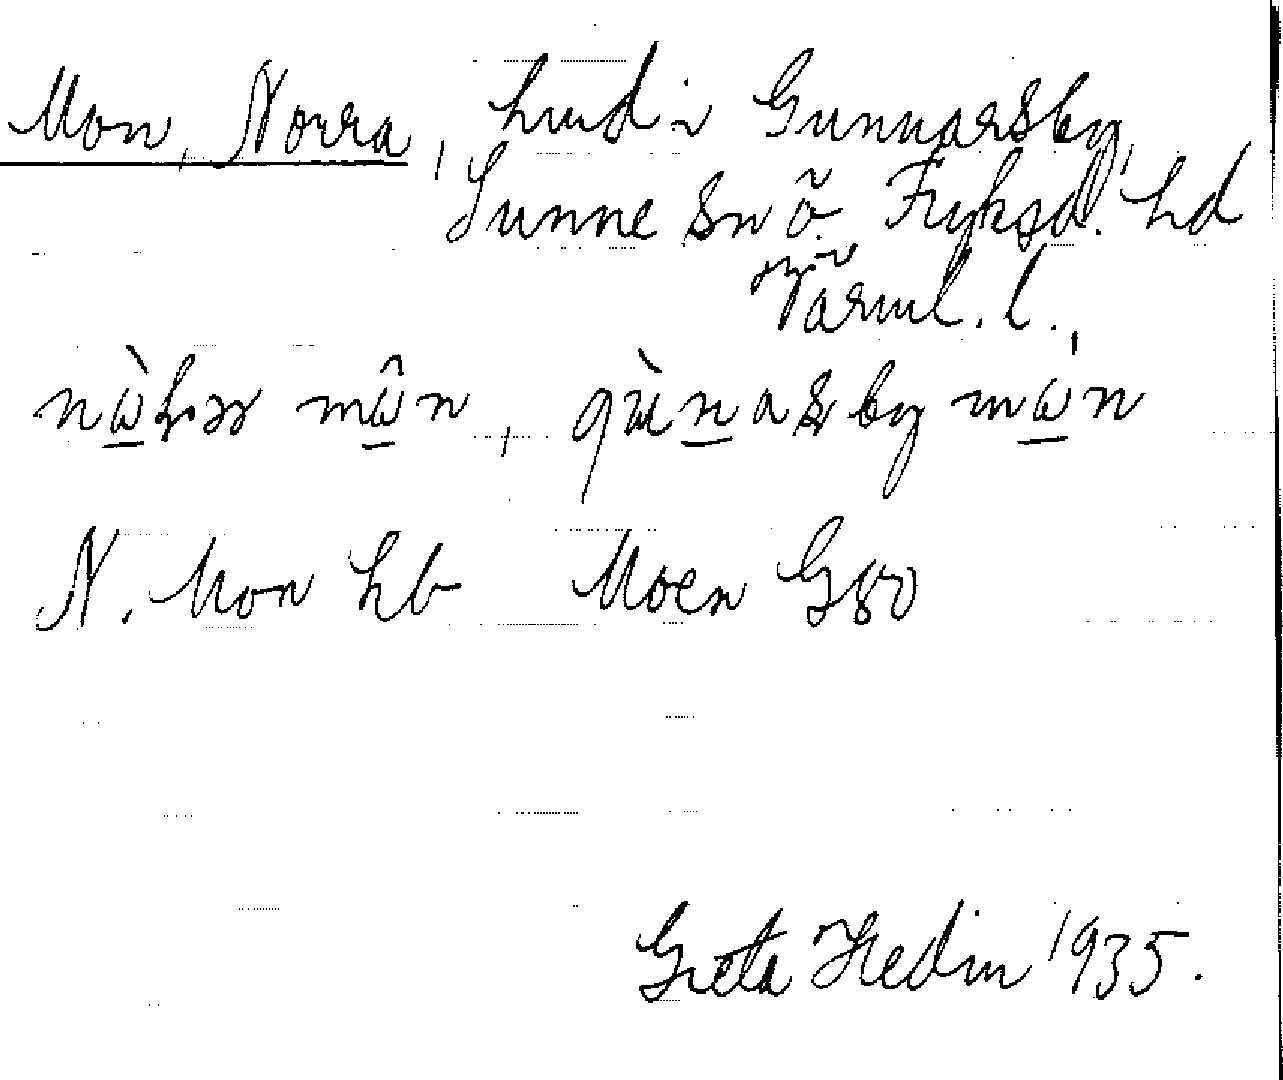 Mon, Norra, hmd i Gunnarsby,
Sunne sn ö. Fryksd. hd
Värml. l.,
mǫ̂n, by mǫ́n
N. Mon hb Moen GSO
Greta Hedin 1935.